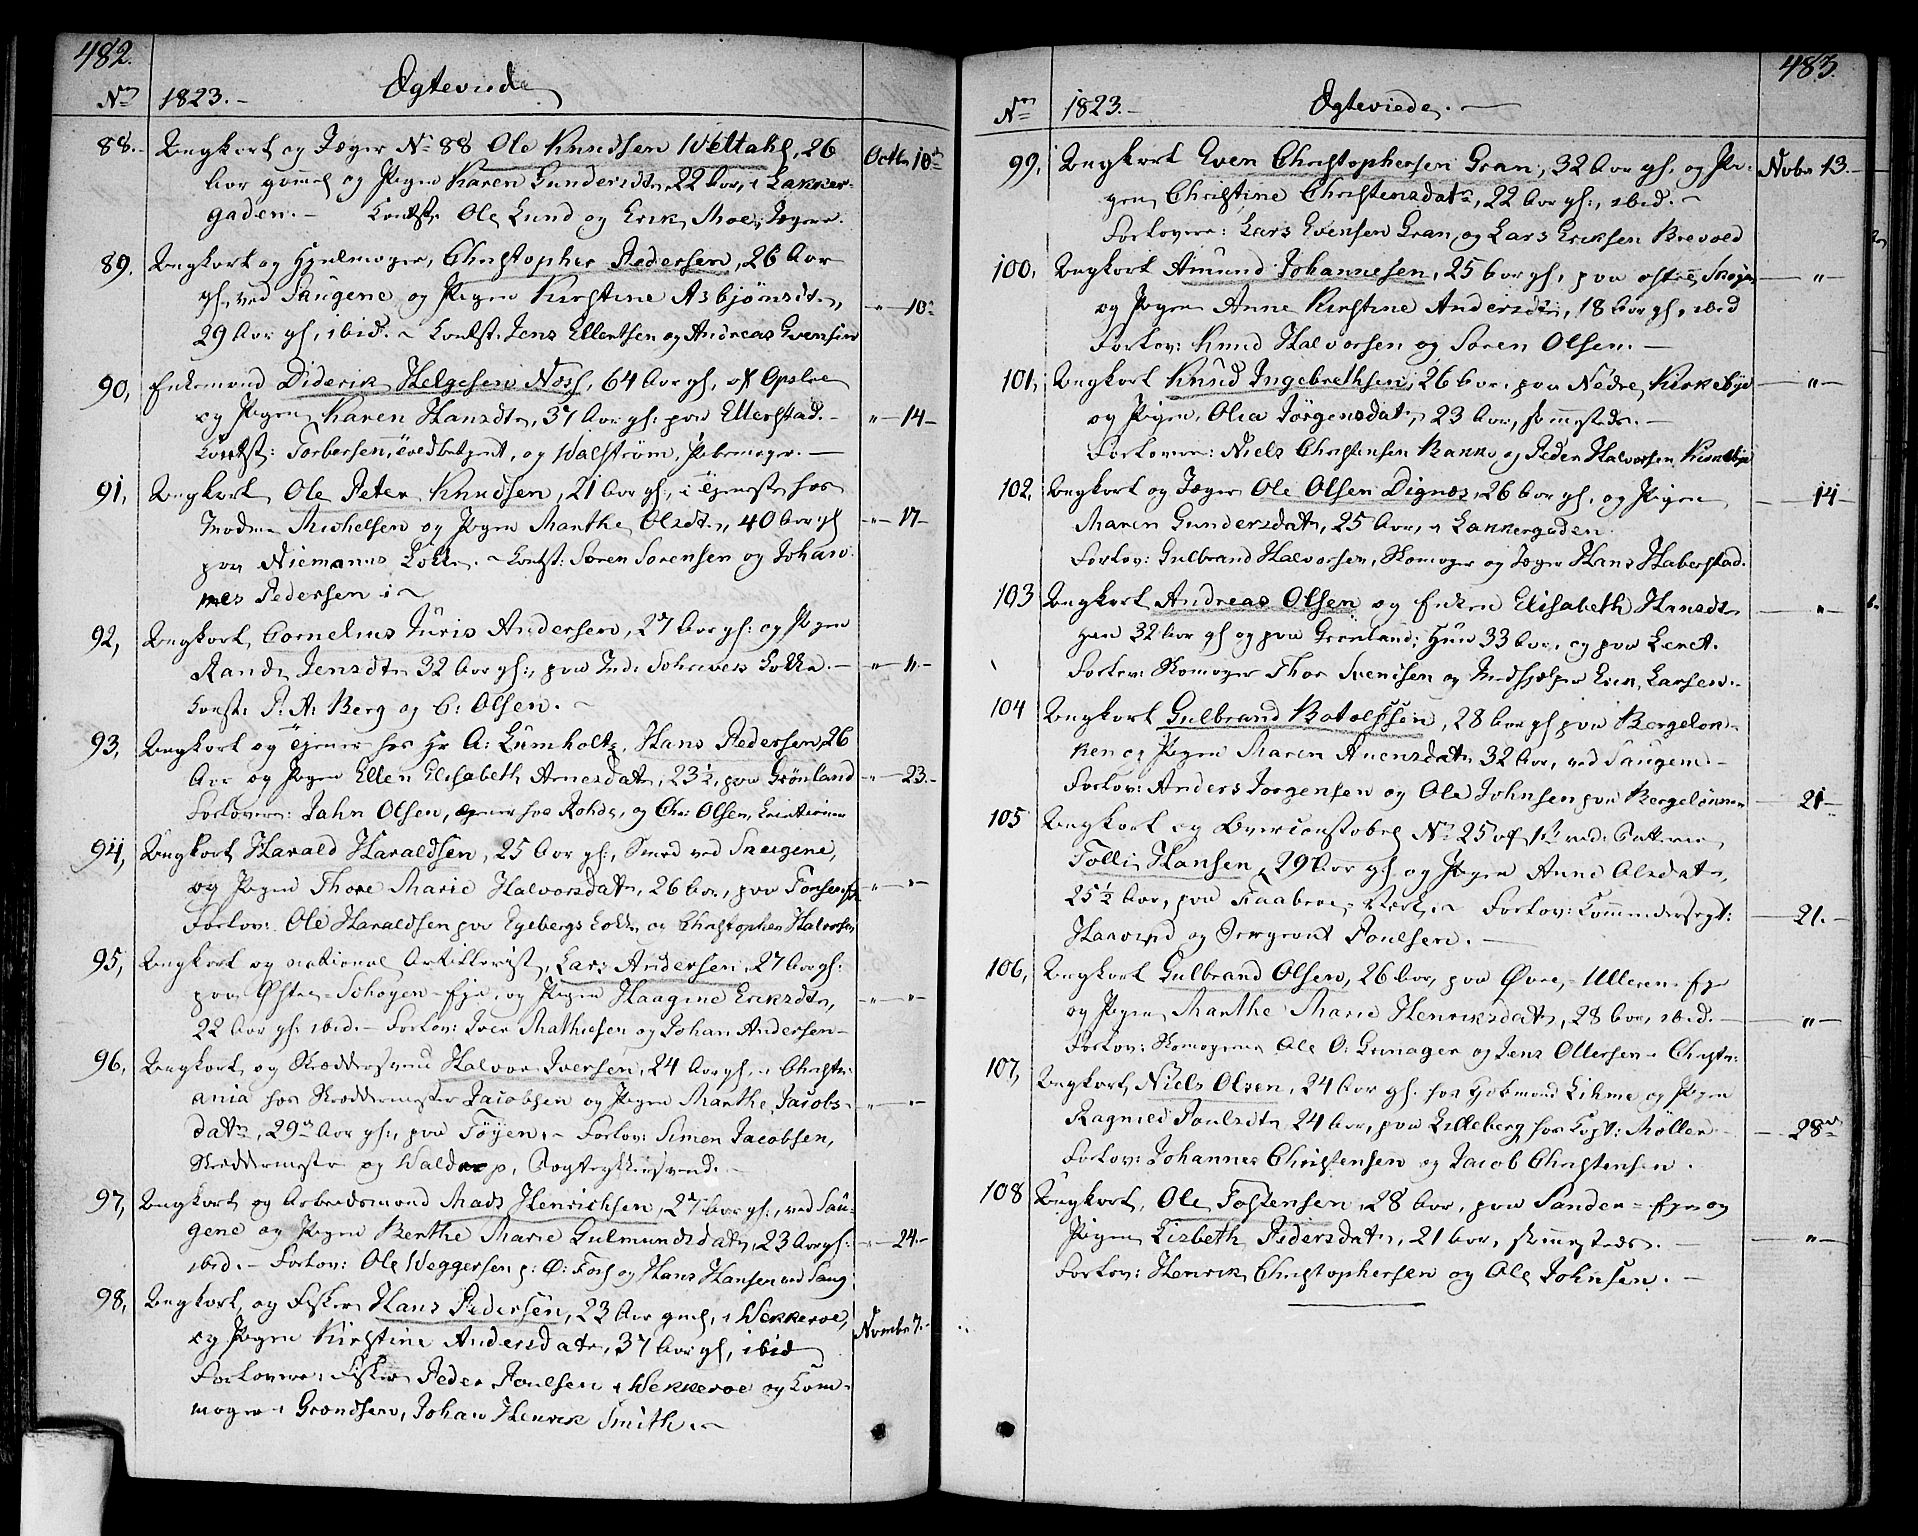 482.
Ægteviede
No 1823.-
88. Ungkarl og Jæger No 88 Ole Knudsen Wettahl, 26 Octbr 10de
Aar gammel og Pigen Karen Gundersdtr, 22 Aar, i Lakker-
gaden. - Ole Lund og Erik Moe, Jægere.
89. Ungkarl og Hjulmager, Christopher Pedersen, 26 Aar
gl, ved Saugene og Pigen Kirstine Asbjørnsdtr, -"- 10de
29 Aar gl, ibid. - Jens Ellertsen og Andreas Evensen
90, Enkemand Diderik Helgesen Næss, 64 Aar gl, af Opsloe
og Pigen Karen Hansdtr, 37 Aar gl: paa Ellerstad. - " - 14 -
Torbersen, og Walstrøm,
91, Ungkarl Ole Peter Knudsen, 21 Aar gl, i Tjeneste hos
Michelsen og Pigen Marthe Olsdtr, 40 Aar gl - " - 17 -
paa Niemanns Løkke. - Søren Sørensen og Johan-
nes Pedersen
92, Ungkarl Cornelius Juris Andersen, 27 Aar gl: og Pigen
Rande Jensdtr 32 Aar gl:, paa Schrivers Løkke. - " - " -
P. A. Berg og C: Olsen. -
93, Ungkarl og Tjener hos Hr A: Lumholtz, Hans Pedersen, 26
Aar og Pigen Ellen Elisabeth Arnesdatr, 23½, paa Grønland - " - 23. -
Forlovere: Jahn Olsen, Tjener hos Rohde, og Chr: Olsen,
94, Ungkarl Harald Haraldsen, 25 Aar gl:, Smed ved Saugene,
og Pigen Thore Marie Halvorsdatr, 26 Aar, paa - " - " -
Forlov: Ole Haraldsen paa Egebergs Løkke og Christopher Halvorsen
95, Ungkarl og national Artillerist, Lars Andersen, 27 Aar gl:
paa Østre-Schøyen-Eje, og Pigen Haagine Eriksdtr, - " - " -
22 Aar gl: ibid. - Forlov: Iver Mathiesen og Johan Andersen -
96, Ungkarl og Skræddersvend Halvor Iversen, 24 Aar gl, i Christi-
ania hos Skræddermester Jacobsen og Pigen Marthe Jacobs- - " - " -
datr, 29 Aar gl:, paa Tøyen. - Forlov: Simen Jacobsen,
Skræddermester og
97, Ungkarl og Arbeidsmand Mads Henrichsen, 27 Aar gl:, ved Sau-
gene og Pigen Berthe Marie Gulmundsdatr, 23 Aar gl: - " - 24 -
ibid. - Forlov: Ole Weggersen p: Ø: Foss og Hans Hansen ved Saug:
98, Ungkarl og Fisker Hans Pedersen, 23 Aar gml, i Wækkeroe, Novmbr 7. -
og Pigen Kirstine Andersdatr, 37 Aar gl, ibid
Forlovere: Fisker Peder Poulsen i Wækkeroe og
mager i Grændsen, Johan Henrik Smith. -
483.
Ægteviede. -
No 1823. -
99, Ungkarl Even Christophersen Gran, 32 Aar gl. og Pi- Nvbr 13. -
gen Christine Christensdatr, 22 Aar gl:, ibid. -
Forlovere: Lars Evensen Gran og Lars Eriksen Brevold
100, Ungkarl Amund Johannesen, 25 Aar gl, paa østre - " -
og Pigen Anne Kirstine Andersdtr, 18 Aar gl, ibid
Forlov: Knud Halvorsen og Søren Olsen. -
101, Ungkarl Knud Ingebrethsen, 26 Aar, paa Nedre Kirkebye - " -
og Pigen, Olia Jörgensdatr, 23 Aar, sammesteds. -
Forlovere: Niels Christensen og Peder Halvorsen
102, Ungkarl og Jæger Ole Olsen Dignæs, 26 Aar gl, og Pigen - 14 -
Maren Gundersdatr, 25 Aar, i Lakkergaden
Forlov: Gulbrand Halvorsen, Skomager og Jæger Hans Haberstad.
103 Ungkarl Andreas Olsen og Enken Elisabeth Hansdtr - " -
Han 32 Aar gl og paa Grønland; Hun 33 Aar, og paa Leret.
Forlov: Skomager Thor Svendsen og Erik Larsen. -
104 Ungkarl Gulbrand Botolfsen, 28 Aar gl paa Bergeløk-
ken og Pigen Maren Auensdatr 32 Aar, ved Saugene -
Forlov: Anders Jørgensen og Ole Johnsen paa Bergeløkken - 21 -
105 Ungkarl og Overconstabel No 25 af 1ste Batterie
Tolli Hansen, 29 Aar gl og Pigen Anne Olsdatr,
25½ Aar, paa Verk. - Forlov: - 21. -
og Sergeant Paulsen. -
106, Ungkarl Gulbrand Olsen, 26 Aar, paa Øvre - Ulleren - Eje
og Pigen, Marthe Marie Henriksdatr, 28 Aar, ibid. - - " -
Forlov: Skomagerne Ole O: Gunager og Jens Ottersen i Christ:
107, Ungkarl Niels Olsen, 24 Aar gl: hos Lihme og Pigen
Ragnild Poulsdtr 24 Aar, paa Lilleberg hos Capt: Møller - - 28de
Forlov: Johannes Christensen og Jacob Christensen.
108 Ungkarl, Ole Tostensen, 28 Aar, paa Sanden - Eje og
Pigen Lisbeth Pedersdatr, 21 Aar, sammesteds. - - " -
Forlov: Henrik Christophersen og Ole Johnsen. -